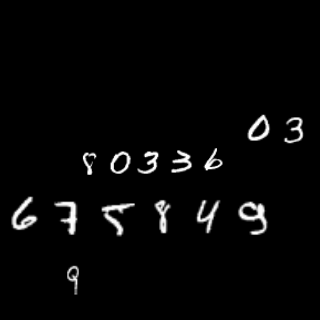 03
80336
675849
9